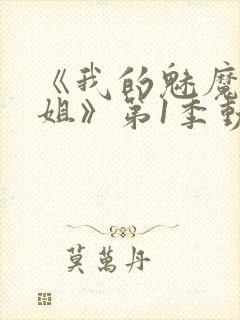 《我的魅魔
姐》第1季動
莫萬丹